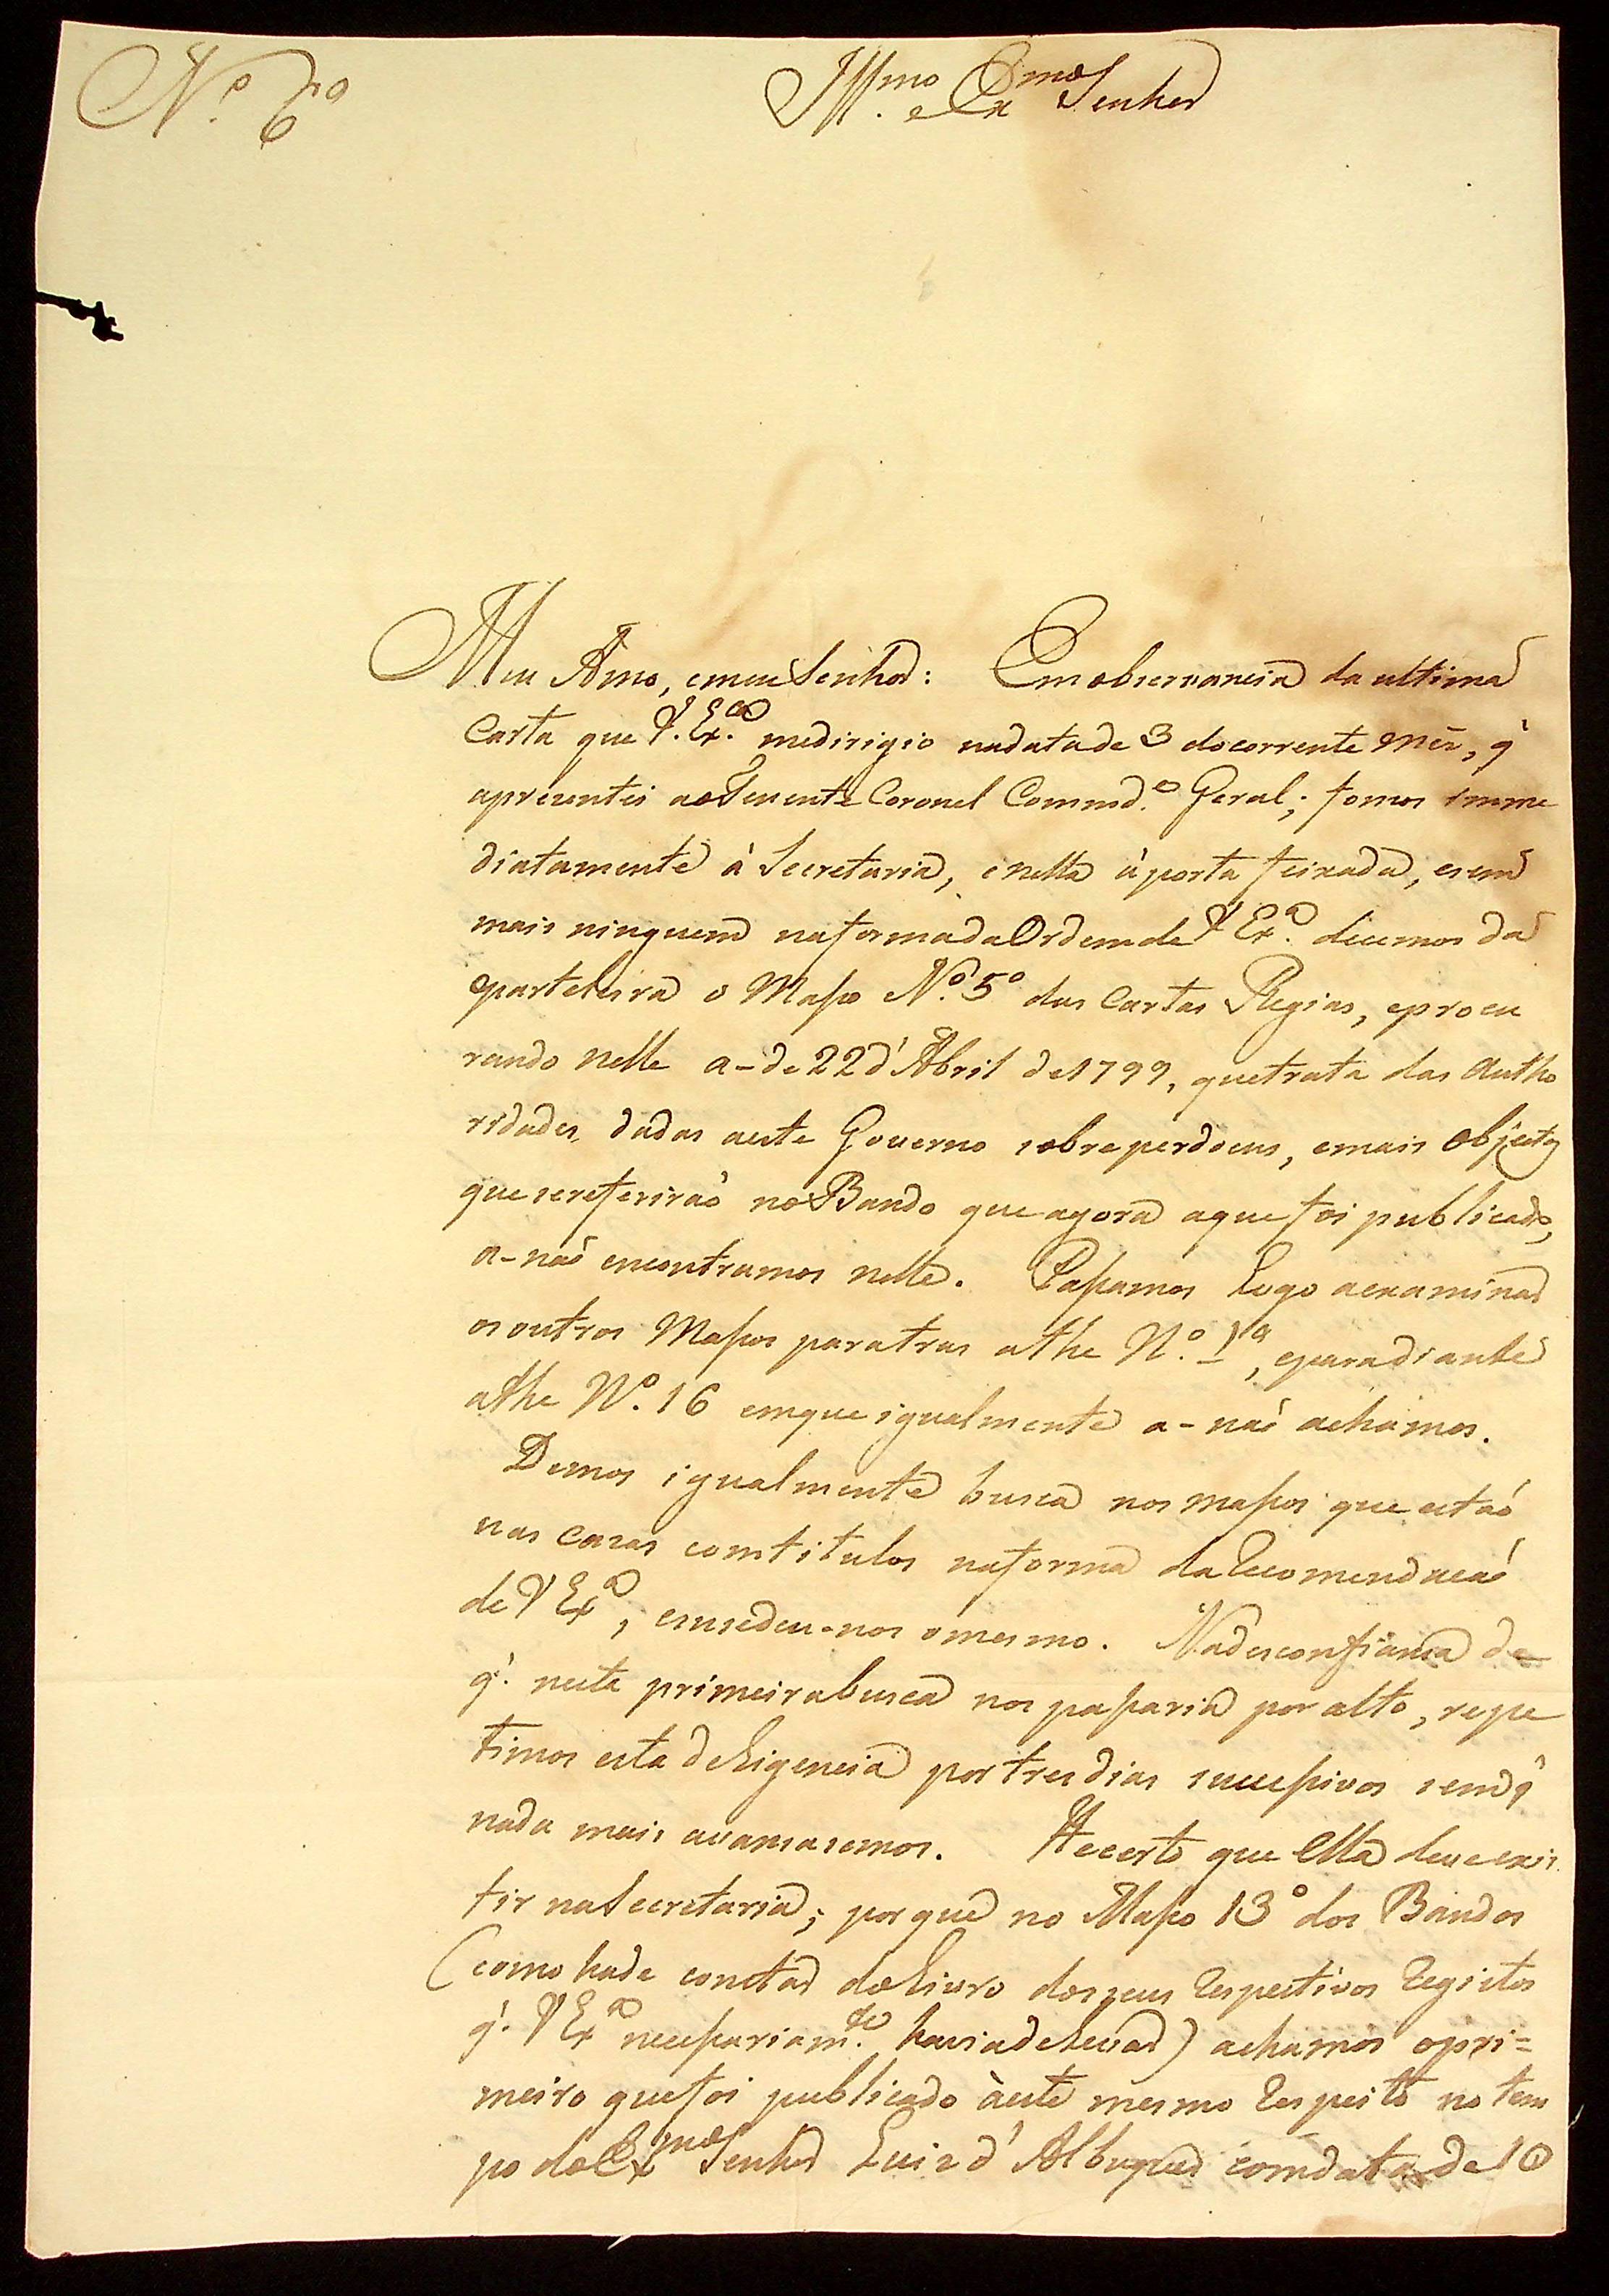 N.º 6º
Ill.mo e Ex.mo Senhor
Meu Amo, emeu Senhor: Em observancia da ultima
Carta que V. Ex.ª medirigio nadatade 3 docorrente mês, q'
aprezentei ao Tenente Coronel Commd.e Geral; fomos imme
diatamente á Secretaria, enella á porta feixada, esem
mais ninguem naforma da Ordem de V Ex.ª decemos da
parteleira o Masso N.º 5º das Cartas Regias, eprocu
rando nelle a-de 22 d'Abril de 1799, quetrata das Autho
ridades, dadas aeste Governo sobre perdoens, emais objectos
que sereferiraõ no Bando que agora aque foi publicado,
a-naõ encontramos nelle. Passamos logo aexaminar
os outros Massos paratras athe N.º 1º, eparadiante
athe N.º 16 emque igualmente a-naõ achamos.
Demos igualmente busca nos massos que estaõ
nas cazas comtitulos naforma da Recomendacaõ
de V Ex.ª, esusedeu-nos omesmo. Nadesconfianca de
q'. nesta primeirabusca nos passaria por alto, repe
timos esta deligencia por tres dias sucessivos semq'
nada mais avansasemos. He certo que ella deve exis
tir na Secretaria; por que no Masso 13º dos Bandos
(como hade constar do Livro dos seus Respectivos Registos
q'. V Ex.ª necessariam.te havia de levar) achamos opri=
meiro que foi publicado àeste mesmo Respeito no tem
po do Ex.mo Senhor Luiz d'Albuquer comdata de 10